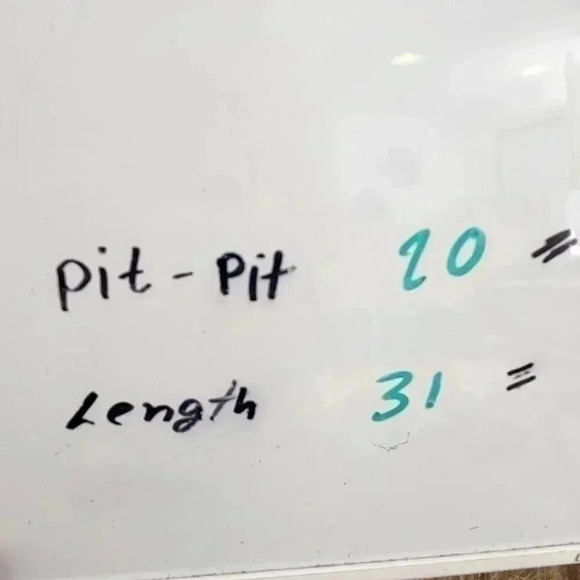 Pit - Pit 20 =
Length 31 =